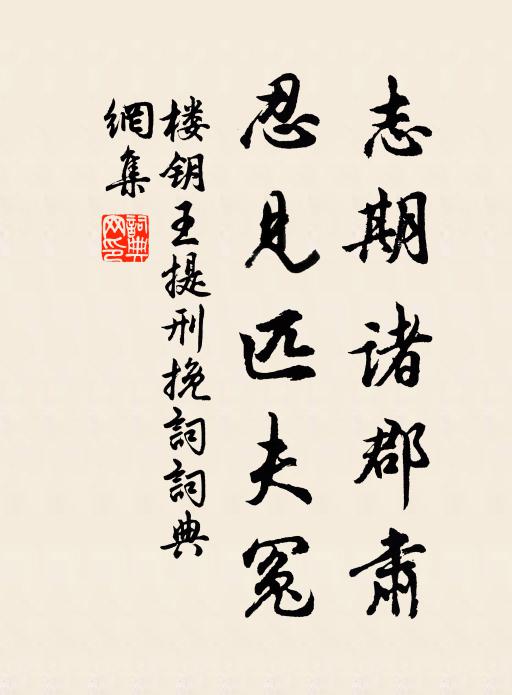 志期诸郡肃
忍见匹夫冤
楼钥王提刑挽詞詞典
網集
詞典網印